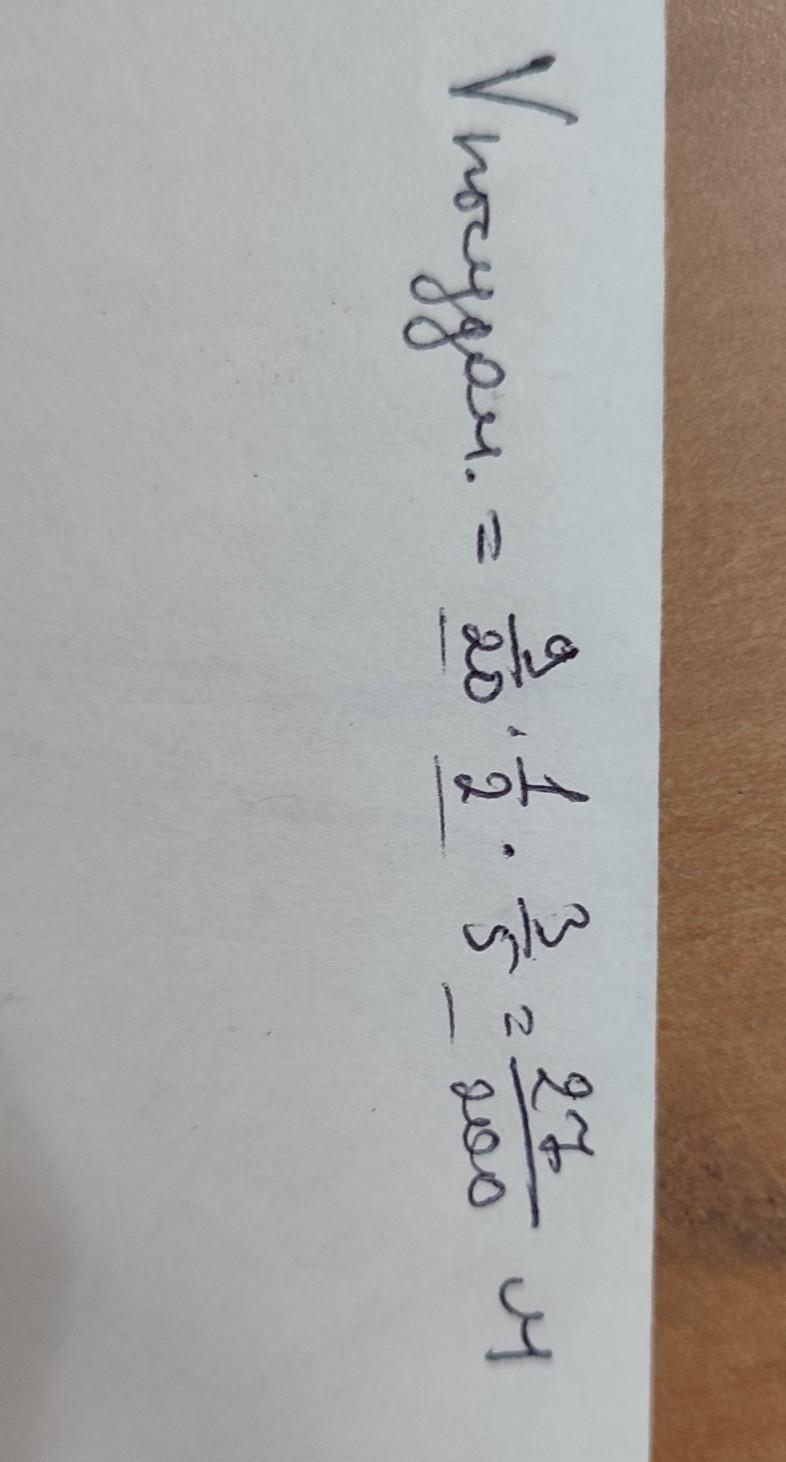 V посудом. = 9/20 · 1/2 · 3/5 = 27/200 м